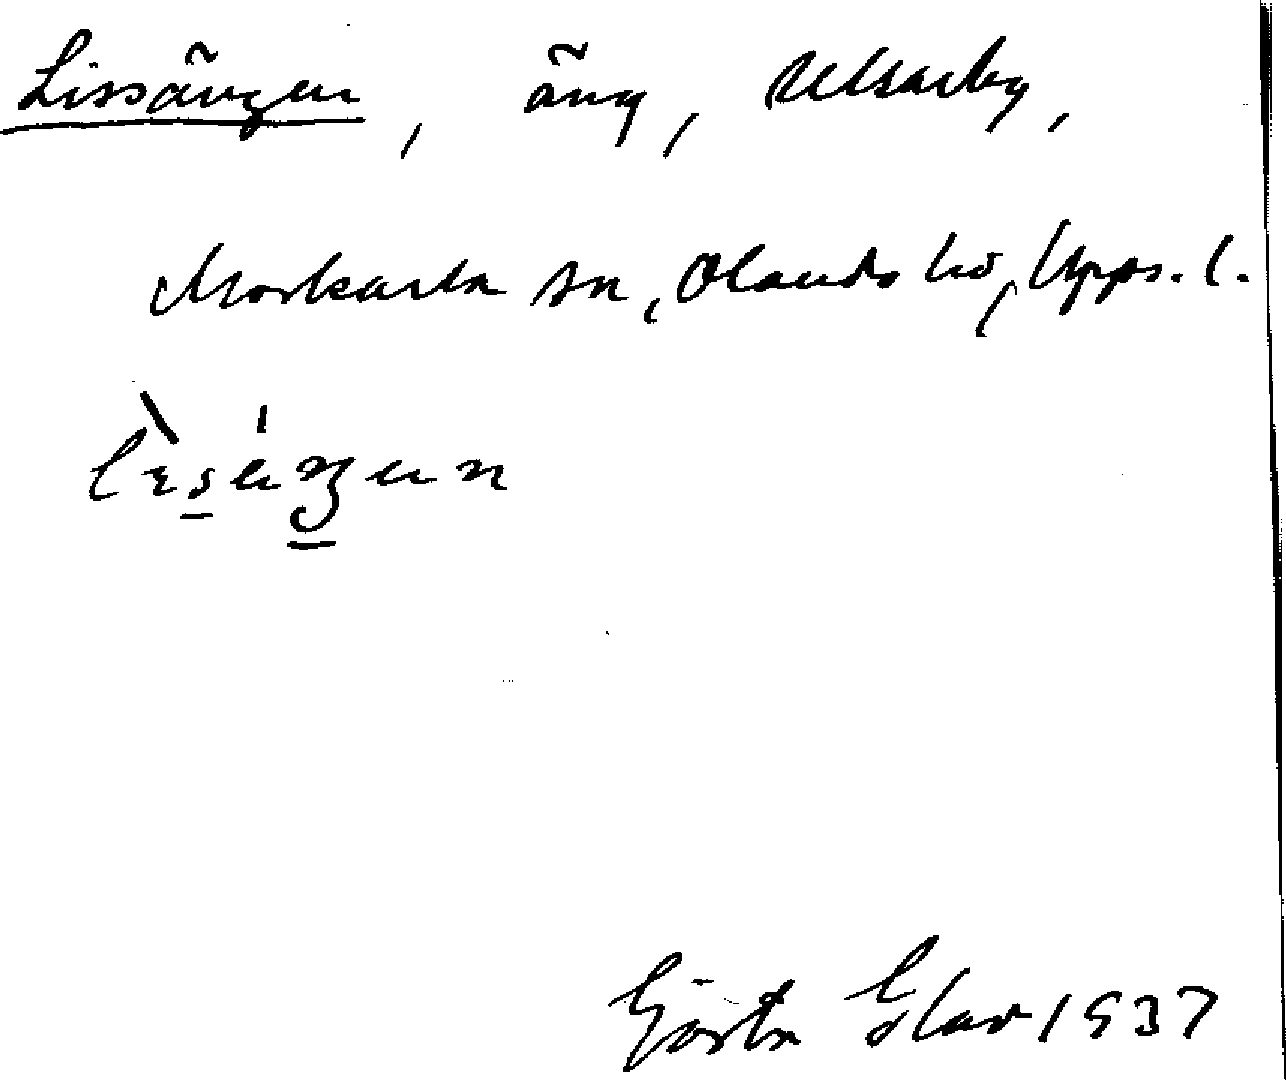 Lissängen, äng, Ullsarby,
Morkarla sn, Olands hd, Upps. l.
Gösta Elav 1937